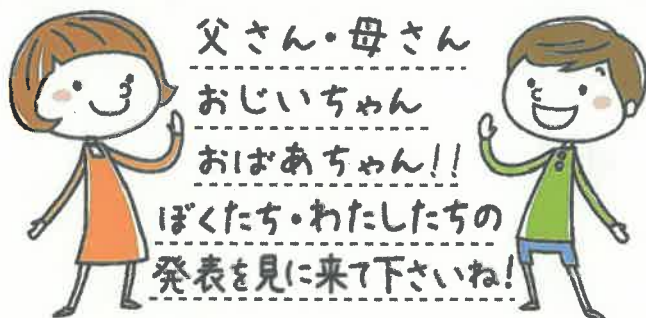 父さん・母さん
おじいちゃん
おばあちゃん!!
ぼくたち・わたしたちの
発表を見に来て下さいね!